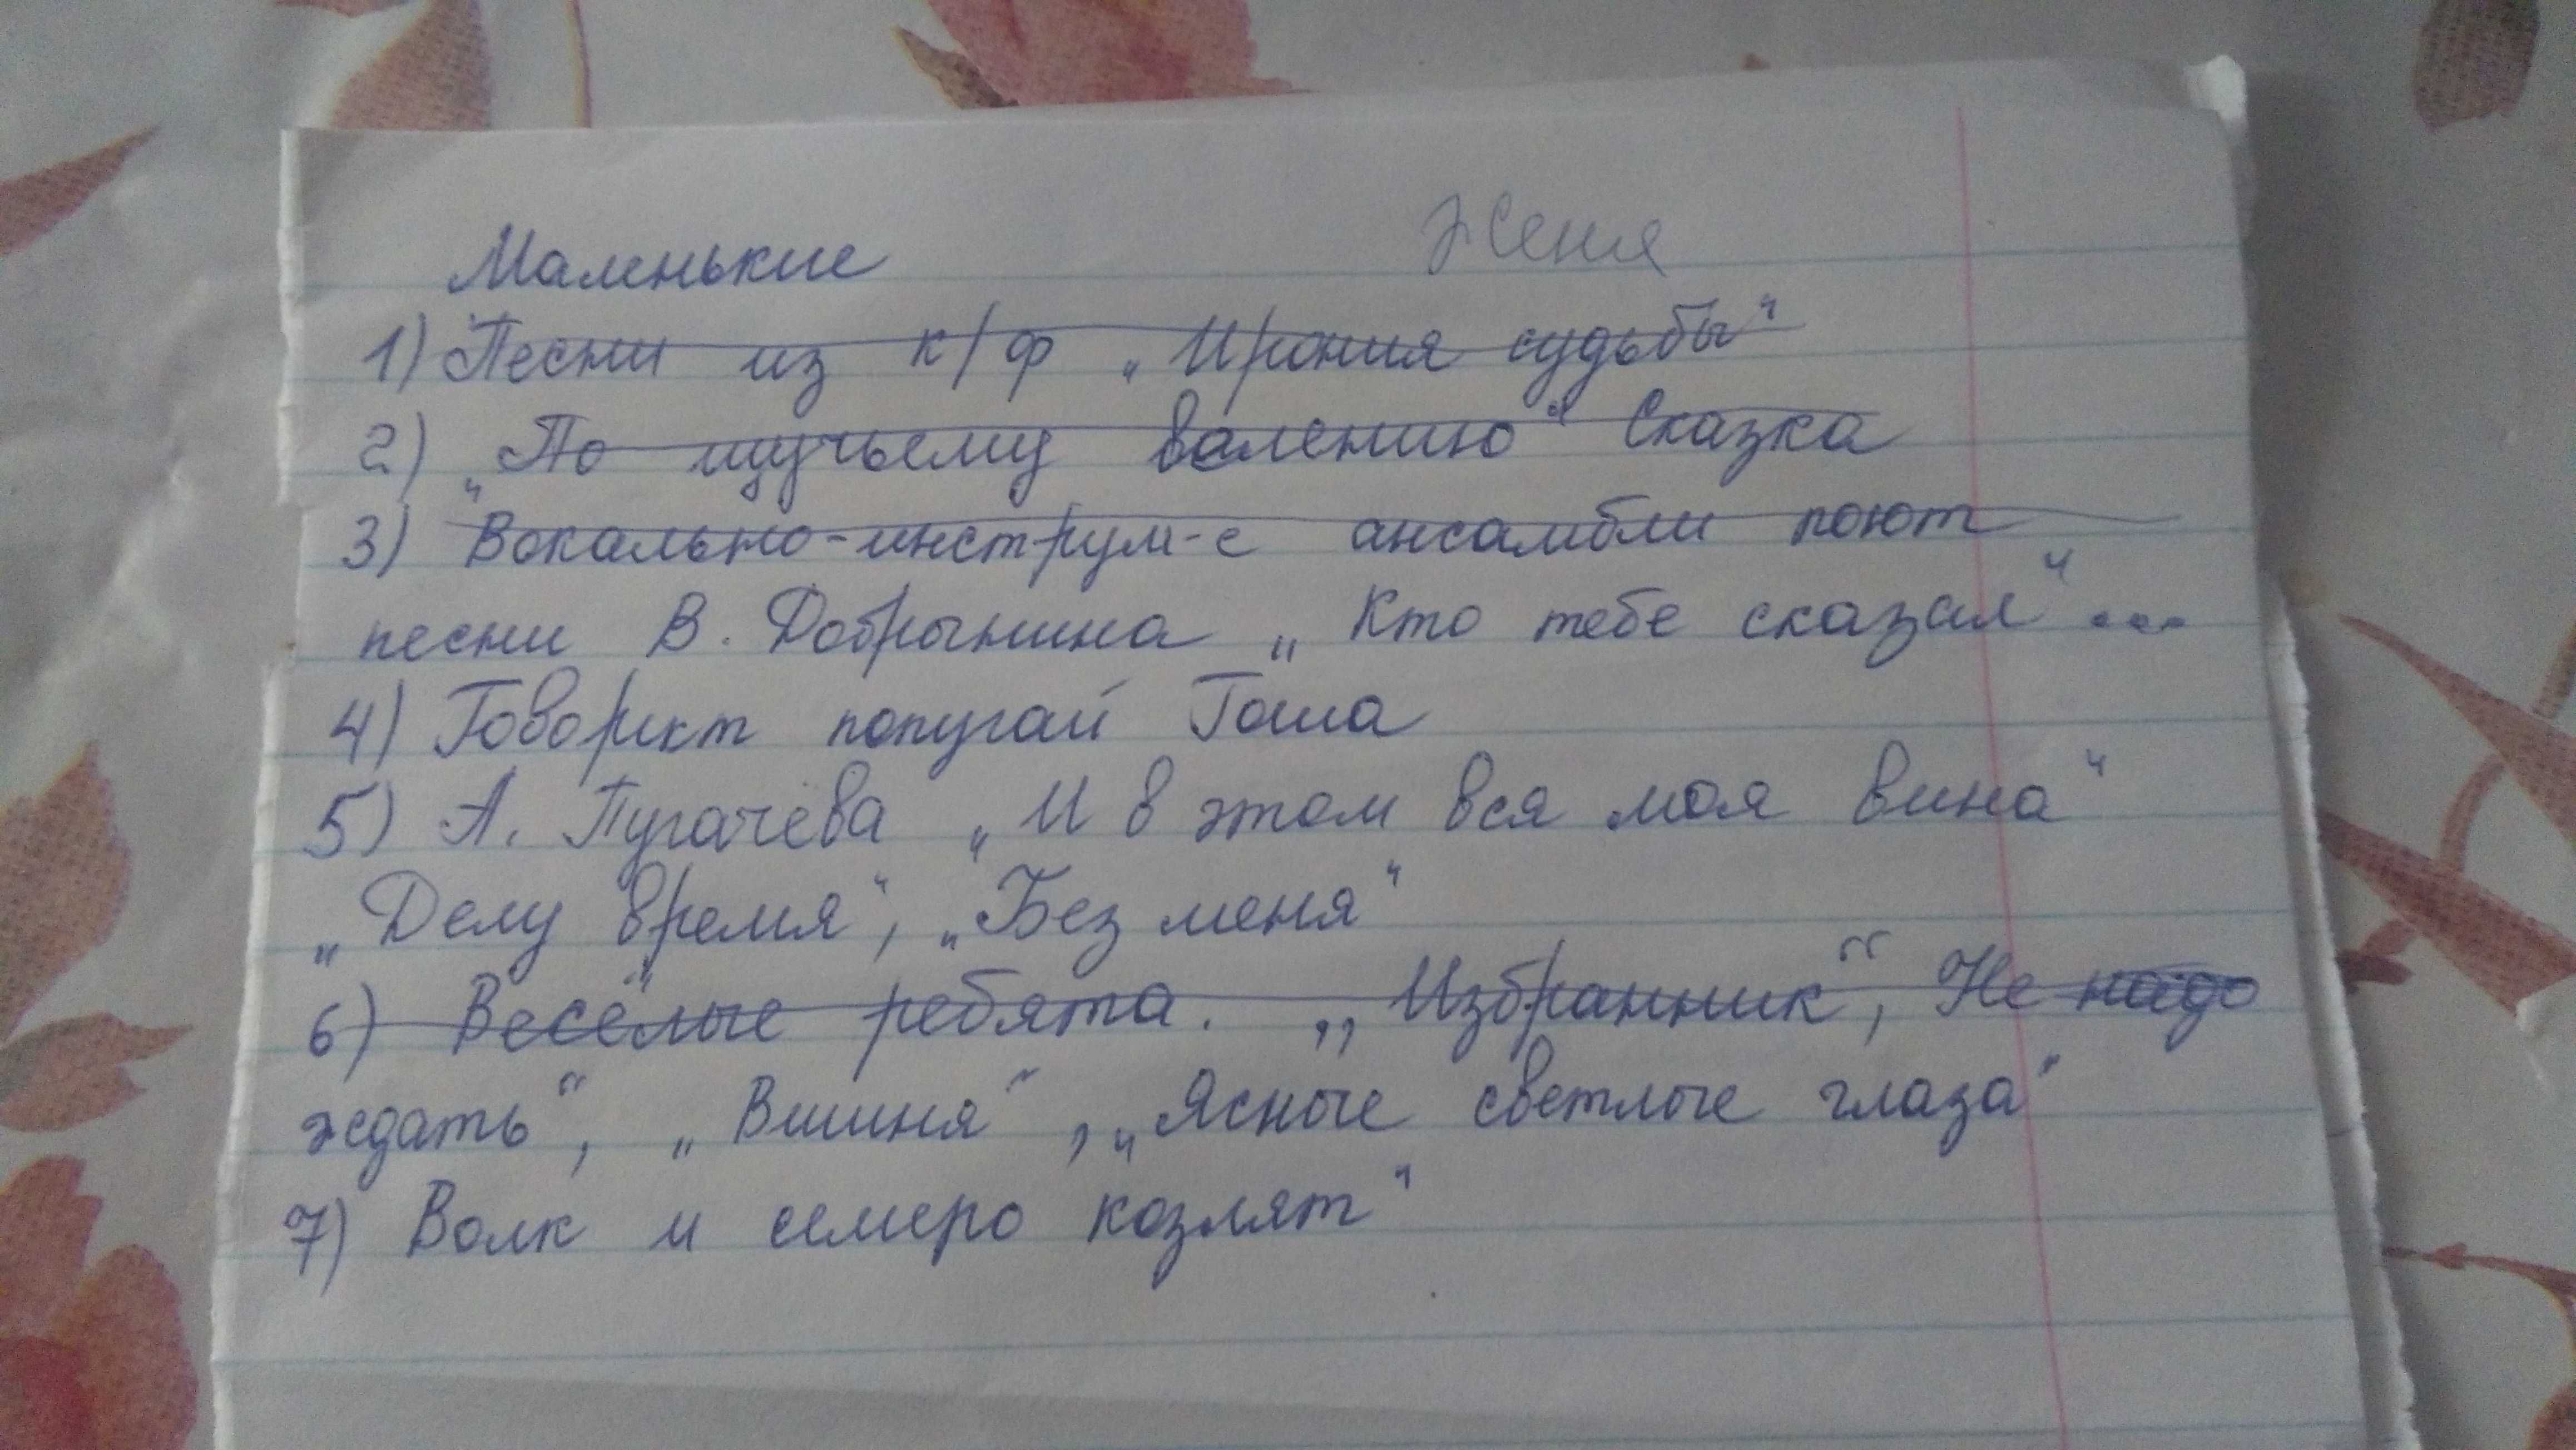 Маленькие Женя
1) Песни из к/ф „Ирония судьбы“
2) „По щучьему велению“ Сказка
3) Вокально-инструм-е ансамбли поют
песни В. Добрынина „Кто тебе сказал“...
4) Говорит попугай Гоша
5) А. Пугачёва „И в этом вся моя вина“
„Делу время“, „Без меня“
6) Весёлые ребята. „Избранник“, Не надо
ждать“, „Вишня“, „Ясные светлые глаза“
7) Волк и семеро козлят“